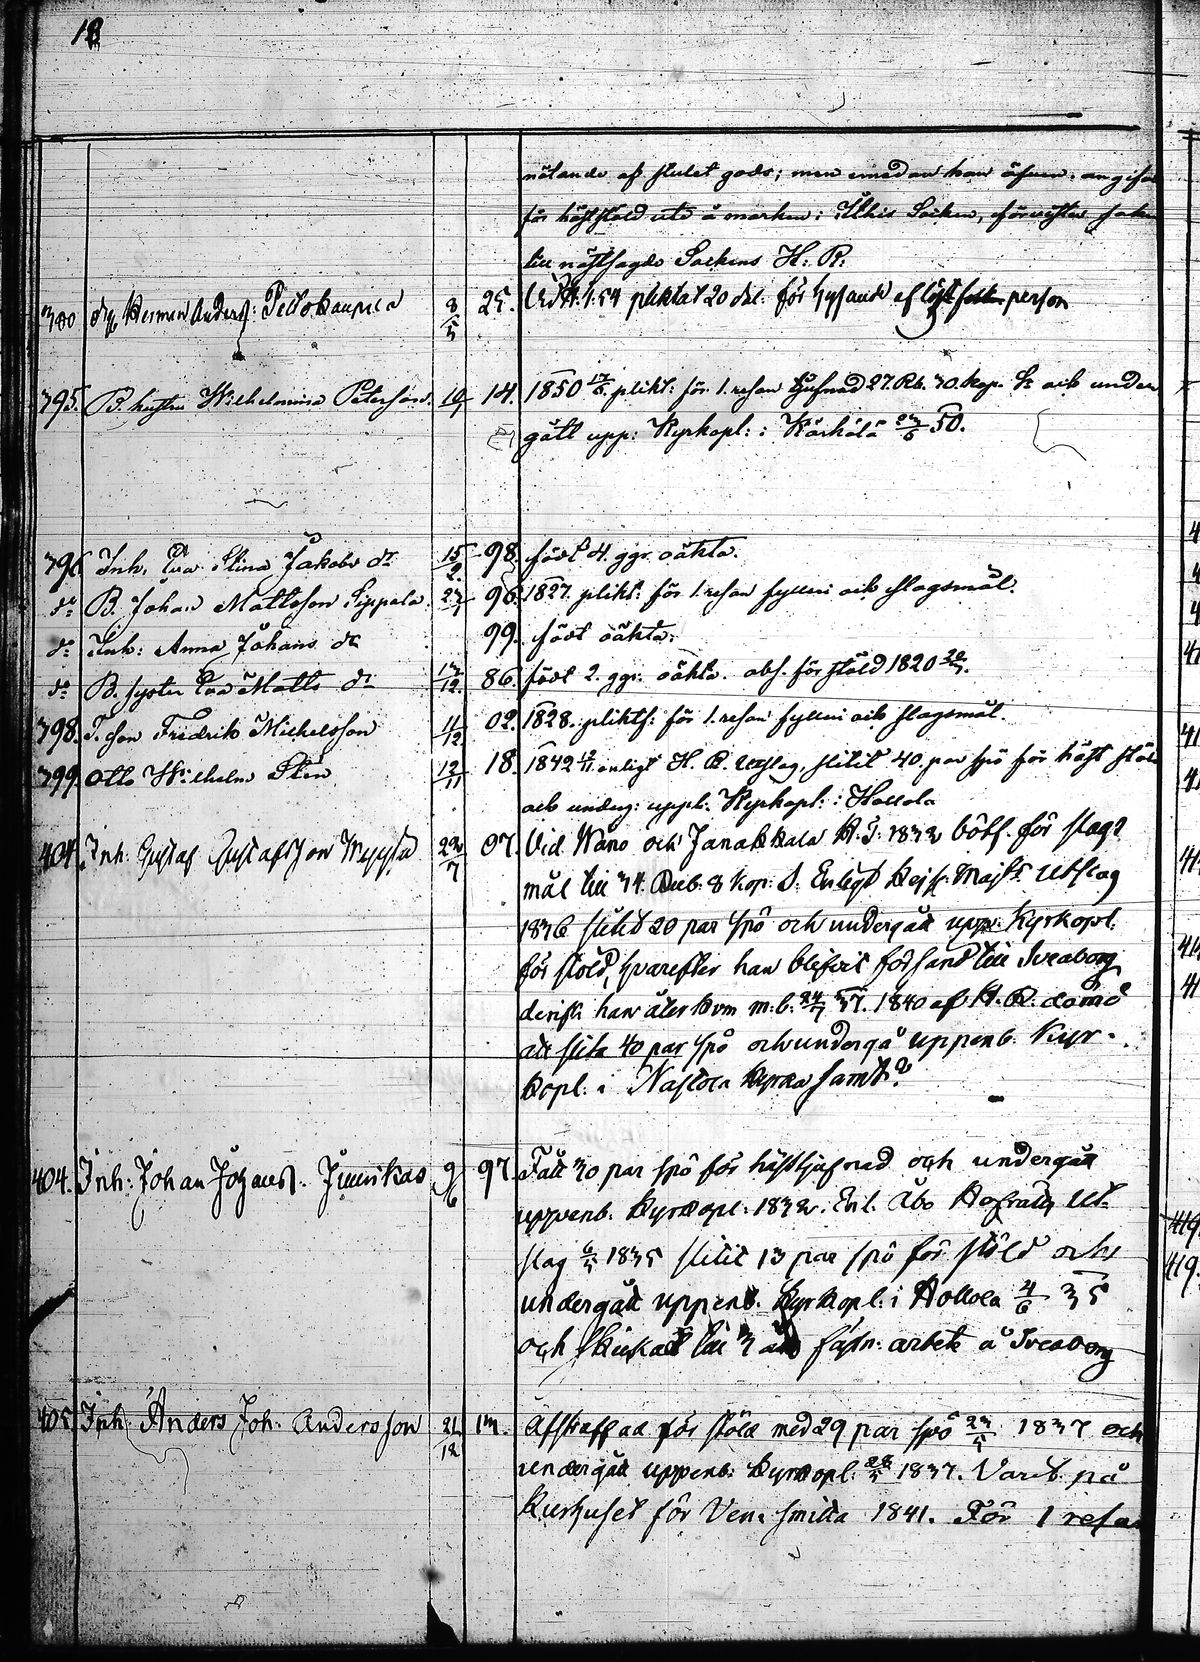 18
nötande af stulet gods; men emedan han äfven angifves
för häststöld ute å marken i Sockn, saken
till nästsagde Sockens H. R.
380 Herman Anders: Peltokaupila 8/5 25. Vid 1.54 pliktat 20 för hysande af person
395. B. hustru Wilhelmina Peterson. 19 14. 1850 17/5. plikt: för 1. resan tjufnad 27. Rb. 70. kop. Sr och under
gått upp: Kyrkopl: i Kärkölä 23/6 50.
396. Inh. Eva Stina Jakobs dr 15/2. 98. födt 4. ggr. oäkta.
dr B. Johan Mattsson Sippola 23/7 96. 1827. plikt: för 1. resan fylleri och slagsmål.
dr Inh: Anna Johans dr 99. födt oäkta.
dr B. syster Eva Matts dr 13/12 86. födt 2. ggr. oäkta. abs. för stöld 1820 20/5.
398. T. son Fredrik Michelsson 11/12. 02. 1828. pliktf: för 1. resan fylleri och slagsmål.
399. Otto Wilhelm Sten 12/11 18. 1842 12/11. enligt H. R. Utslag, slitit 40. par spö för häst stöld
och underg: uppb. Kyrkopl: i Hollola
404. Inh. Gustaf Gustafsson 22/7 07. Vid Wåno och Janakkala H. T. 1832 böt. för slags
mål till 34. Rub: 8 kop: S. Enligt Kejs. Majts Utslag
1836 slitit 20 par spö och undergått upp. Kyrkopl.
för stöld, hvarefter han blifvit försänd till Sveaborg
derifr. han återkom m. b. 24/7 37. 1840 af H. R. dömd
att slita 40 par spö och undergå uppenb. Kyr-
kopl. i Nastola Kyrka samt?
404. Inh: Johan Johanss. Junikas 9/6 97. Fått 30 par spö för hästtjufnad och undergått
uppenb. Kyrkopl: 1832. Enl. Åbo Hofrätts Ut-
slag 6/5 1835 slitit 13 par spö för stöld och
undergått uppenb. Kyrkopl: i Hollola 4/6 35
och skickad till 3 års fästn: arbete å Sveaborg
405. Inh: Anders Joh. Andersson 21/12 13. Afstraffad för stöld med 29 par spö 23/5 1837 och
undergått uppenb: Kyrkopl: 28/5 1837. Varit på
Kurhuset för Ven: smitta 1841. För 1 resan